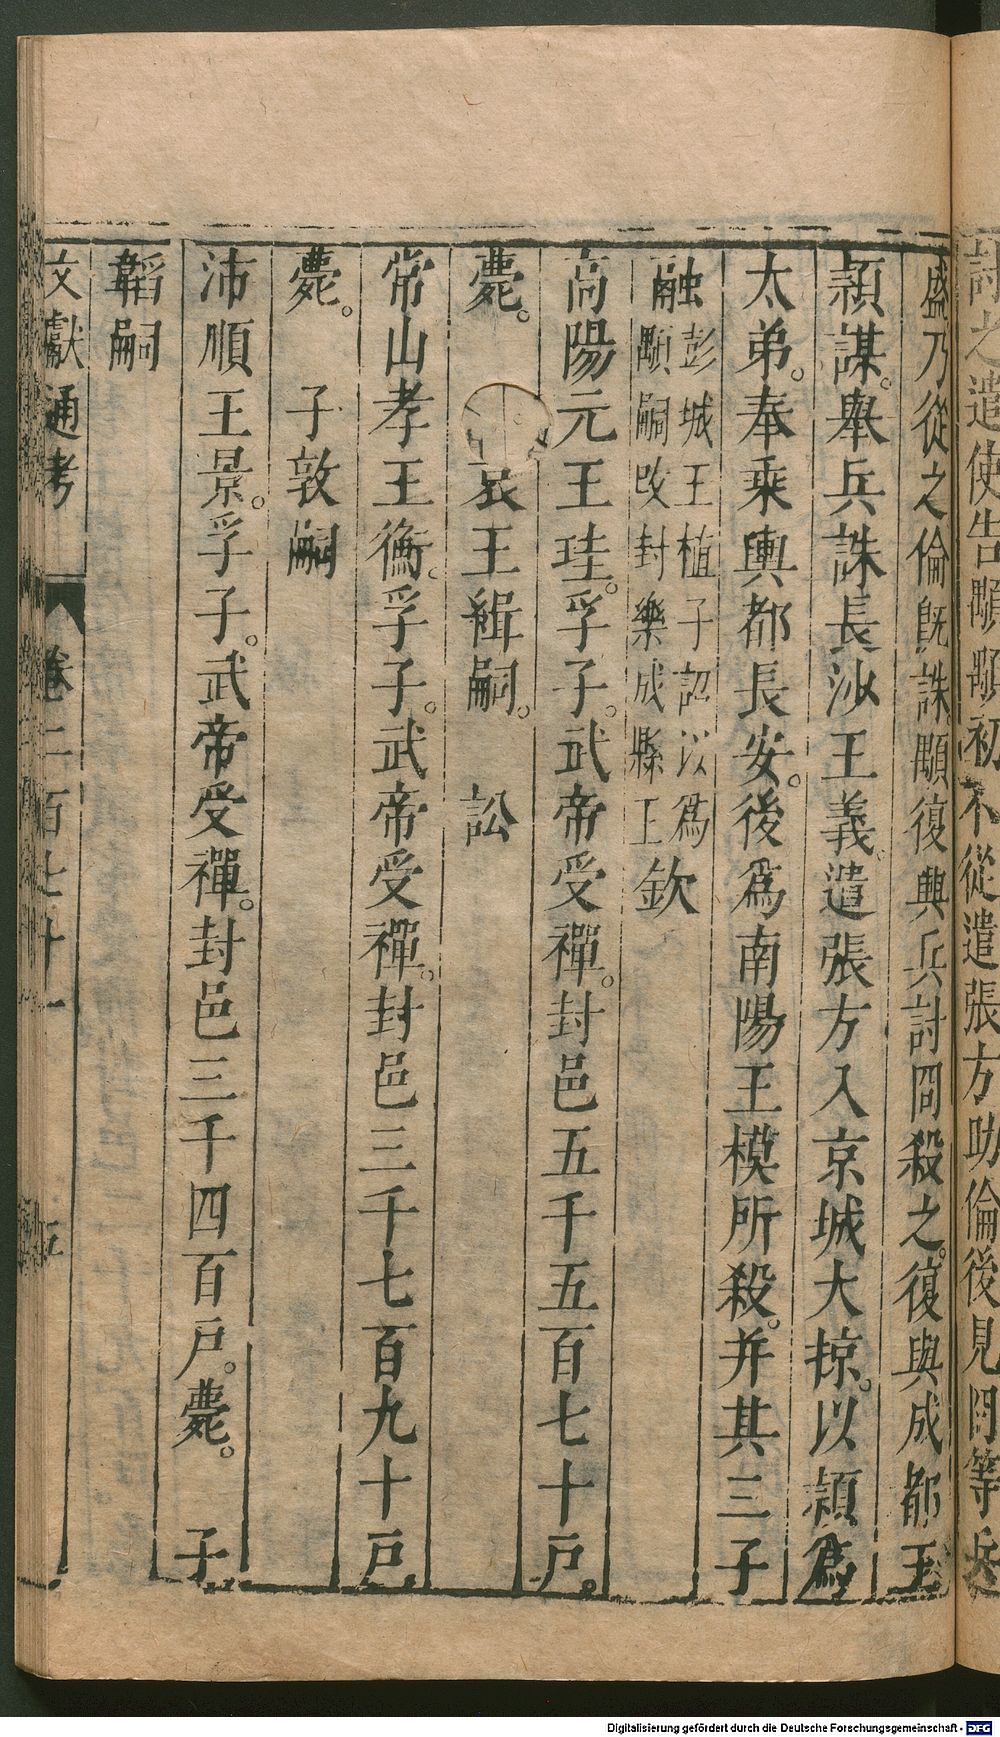 討之遣使告顒顒初不從遣張方助倫後見冏等兵
盛乃從之倫既誅顒復興兵討冏殺之復與成都王
穎謀舉兵誅長沙王義遣張方入京城大掠以穎為
太弟奉乘輿都長安後為南陽王模所殺并其三子
融彭城王植子詔以為
顒嗣改封樂成縣王欽
高陽元王珪孚子武帝受禪封邑五千五百七十戶
薨 哀王緝嗣 訟
常山孝王衡孚子武帝受禪封邑三千七百九十戶
薨 子敦嗣
沛順王景孚子武帝受禪封邑三千四百戶薨 子
韜嗣
文獻通考 卷二百七十一 五
Digitalisierung gefördert durch die Deutsche Forschungsgemeinschaft - DFG